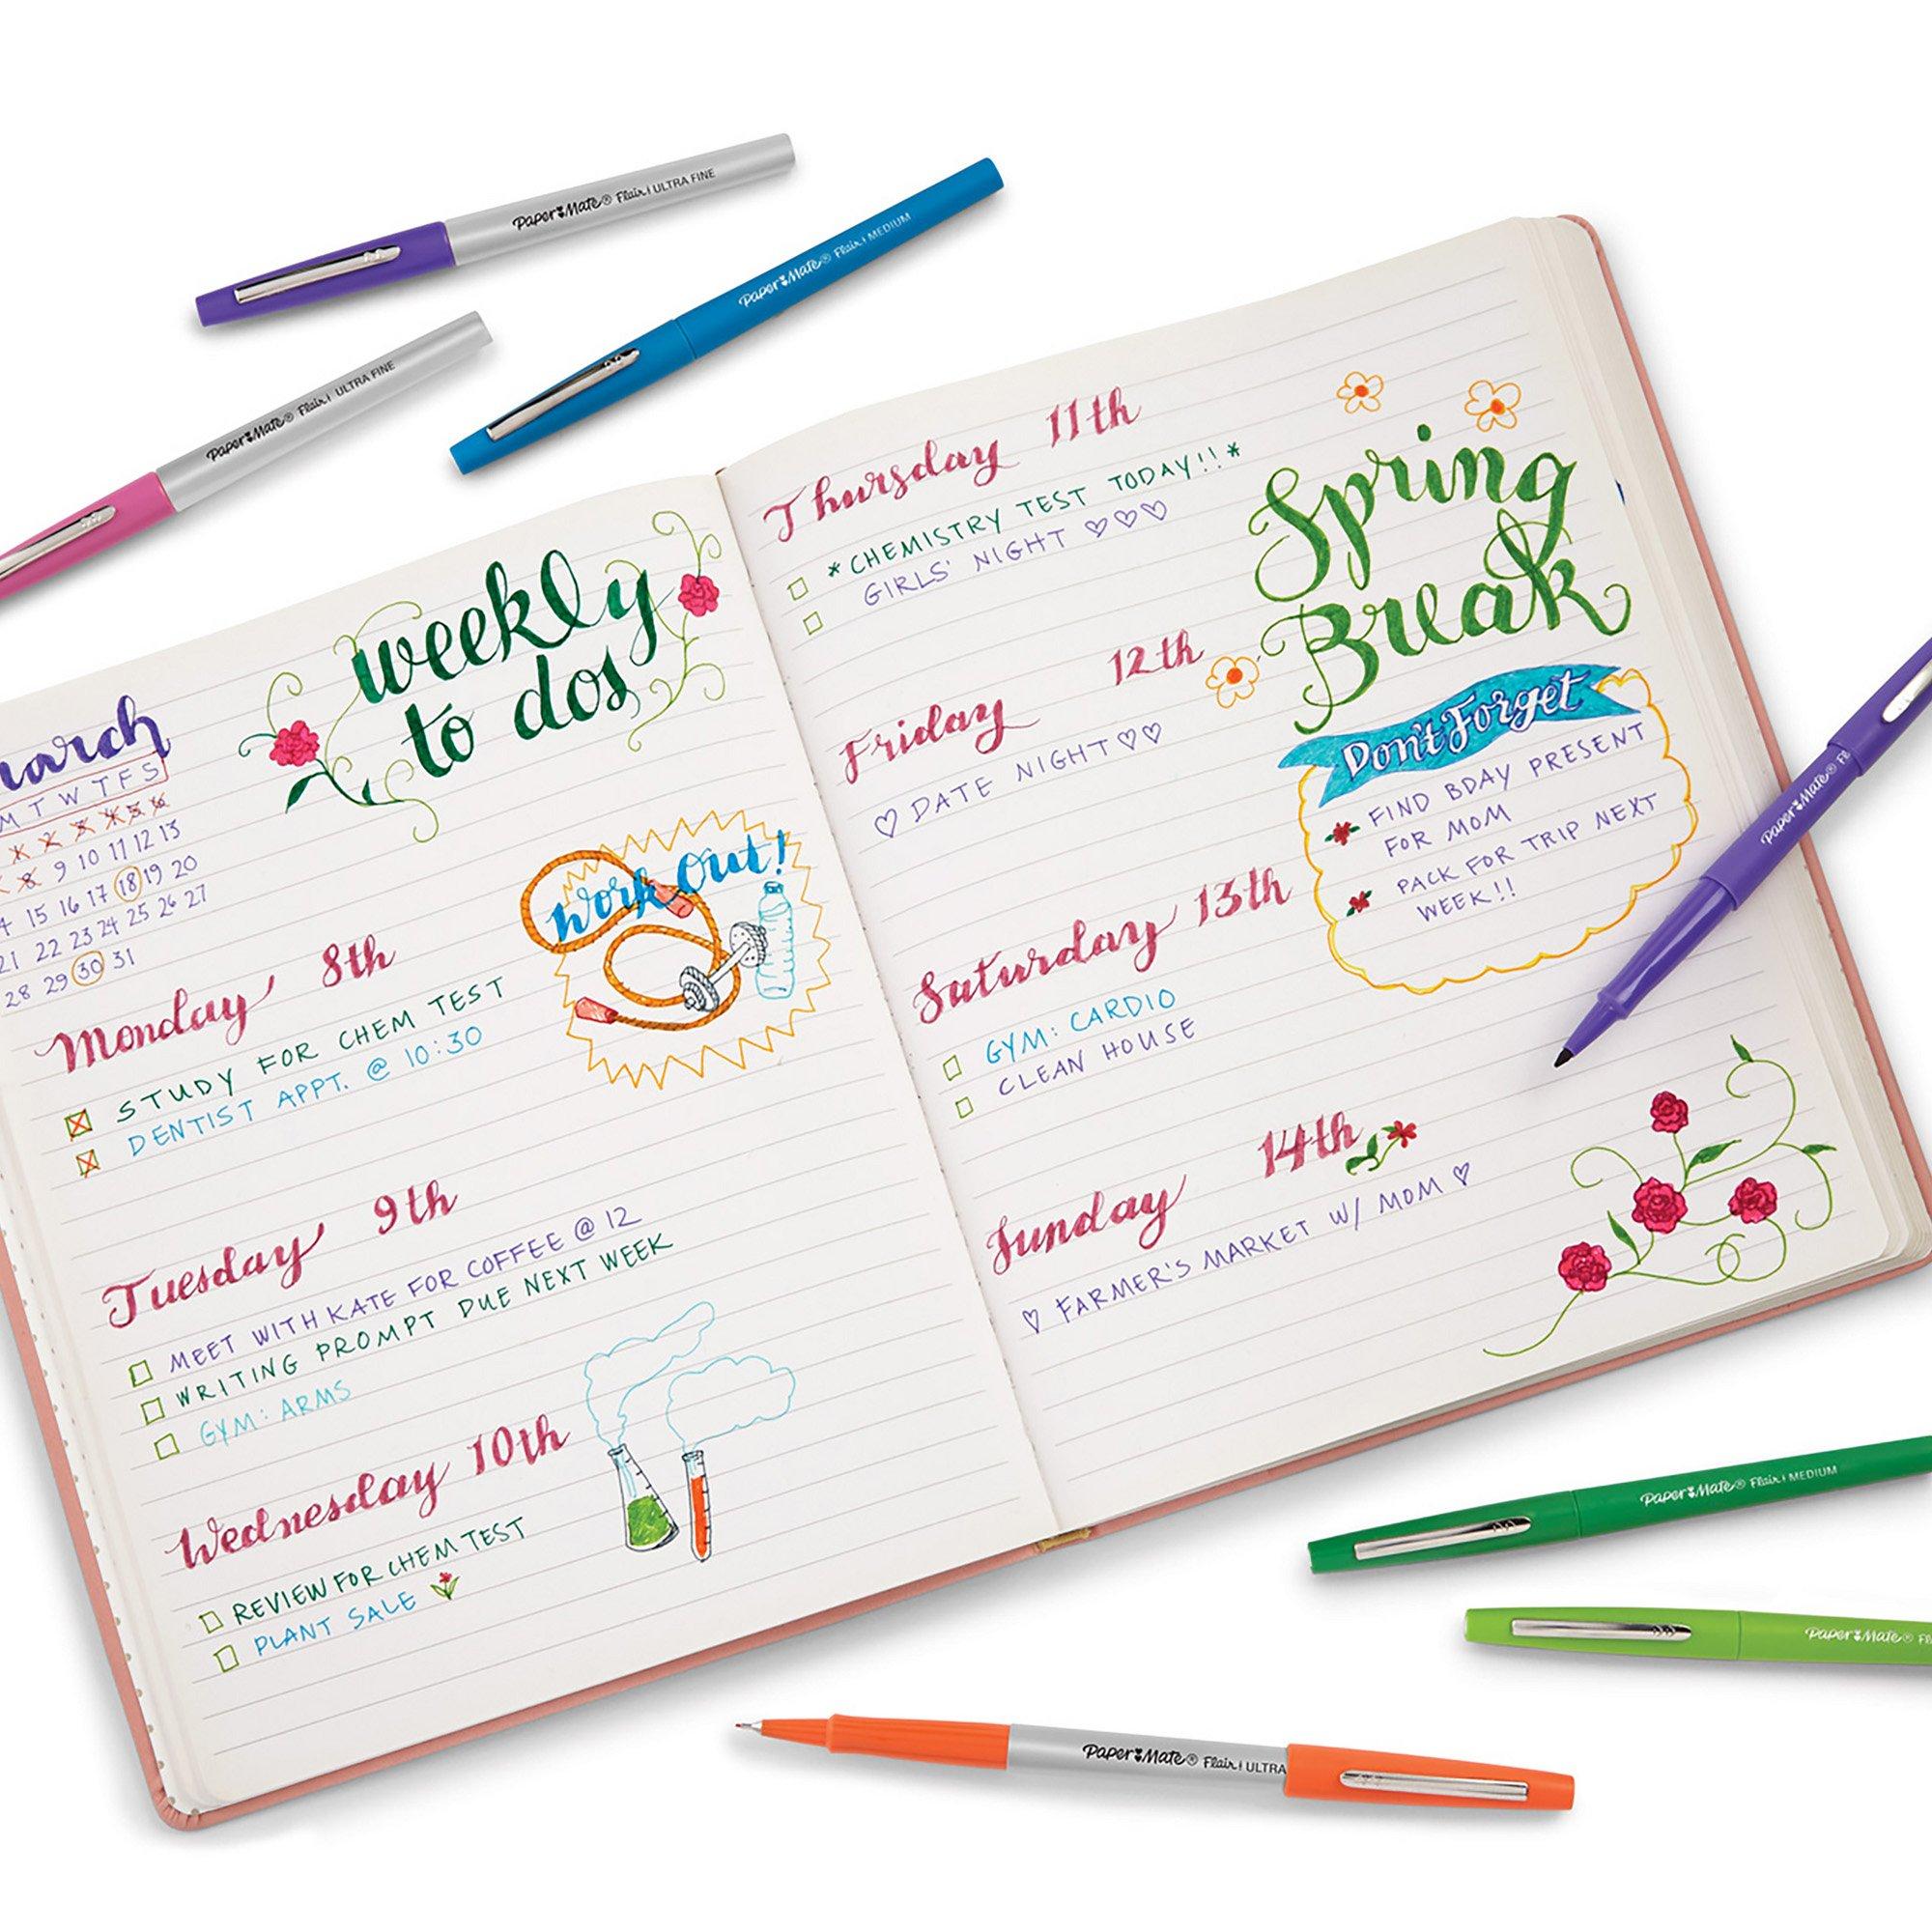 Paper Mate® Flair ULTRA FINE
Paper Mate® Flair MEDIUM
Paper Mate® Flair ULTRA FINE
weekly
to dos
M T W T F S
9 10 11 12 13
15 16 17 18 19 20
21 22 23 24 25 26 27
28 29 30 31
Work Out!
Monday 8th
STUDY FOR CHEM TEST
DENTIST APPT. @ 10:30
Tuesday 9th
MEET WITH KATE FOR COFFEE @ 12
WRITING PROMPT DUE NEXT WEEK
GYM: ARMS
Wednesday 10th
REVIEW FOR CHEM TEST
PLANT SALE
Thursday 11th
*CHEMISTRY TEST TODAY!!*
GIRLS' NIGHT ♡♡♡
Friday 12th
♡ DATE NIGHT ♡♡
Saturday 13th
GYM: CARDIO
CLEAN HOUSE
Sunday 14th
♡ FARMER'S MARKET W/ MOM ♡
Spring
Break
Don't Forget
FIND BDAY PRESENT
FOR MOM
PACK FOR TRIP NEXT
WEEK!!
Paper Mate®
Paper Mate® Flair MEDIUM
Paper Mate®
Paper Mate® Flair ULTRA